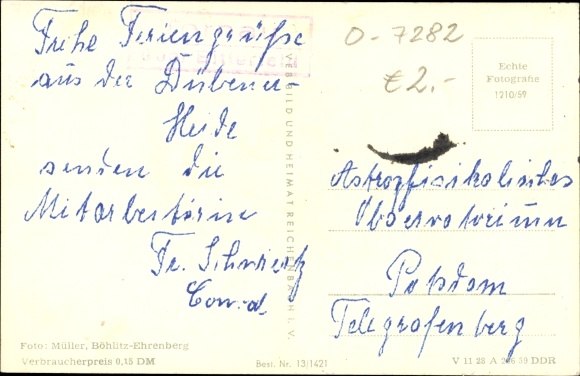 Frohe Feriengrüße
aus der Dübener-
Heide
senden die
Mitarbeiterin
Fr. Schwiertz
Conrad
O-7282
€2.-
Echte
Fotografie
1210/59
VEB BILD UND HEIMAT REICHENBACH I. V.
Astrophysikalisches
Observatorium
Potsdam
Telegrafenberg
Foto: Müller, Böhlitz-Ehrenberg
Verbraucherpreis 0,15 DM
Best. Nr. 13/1421
V 11 28 A 206/59 DDR